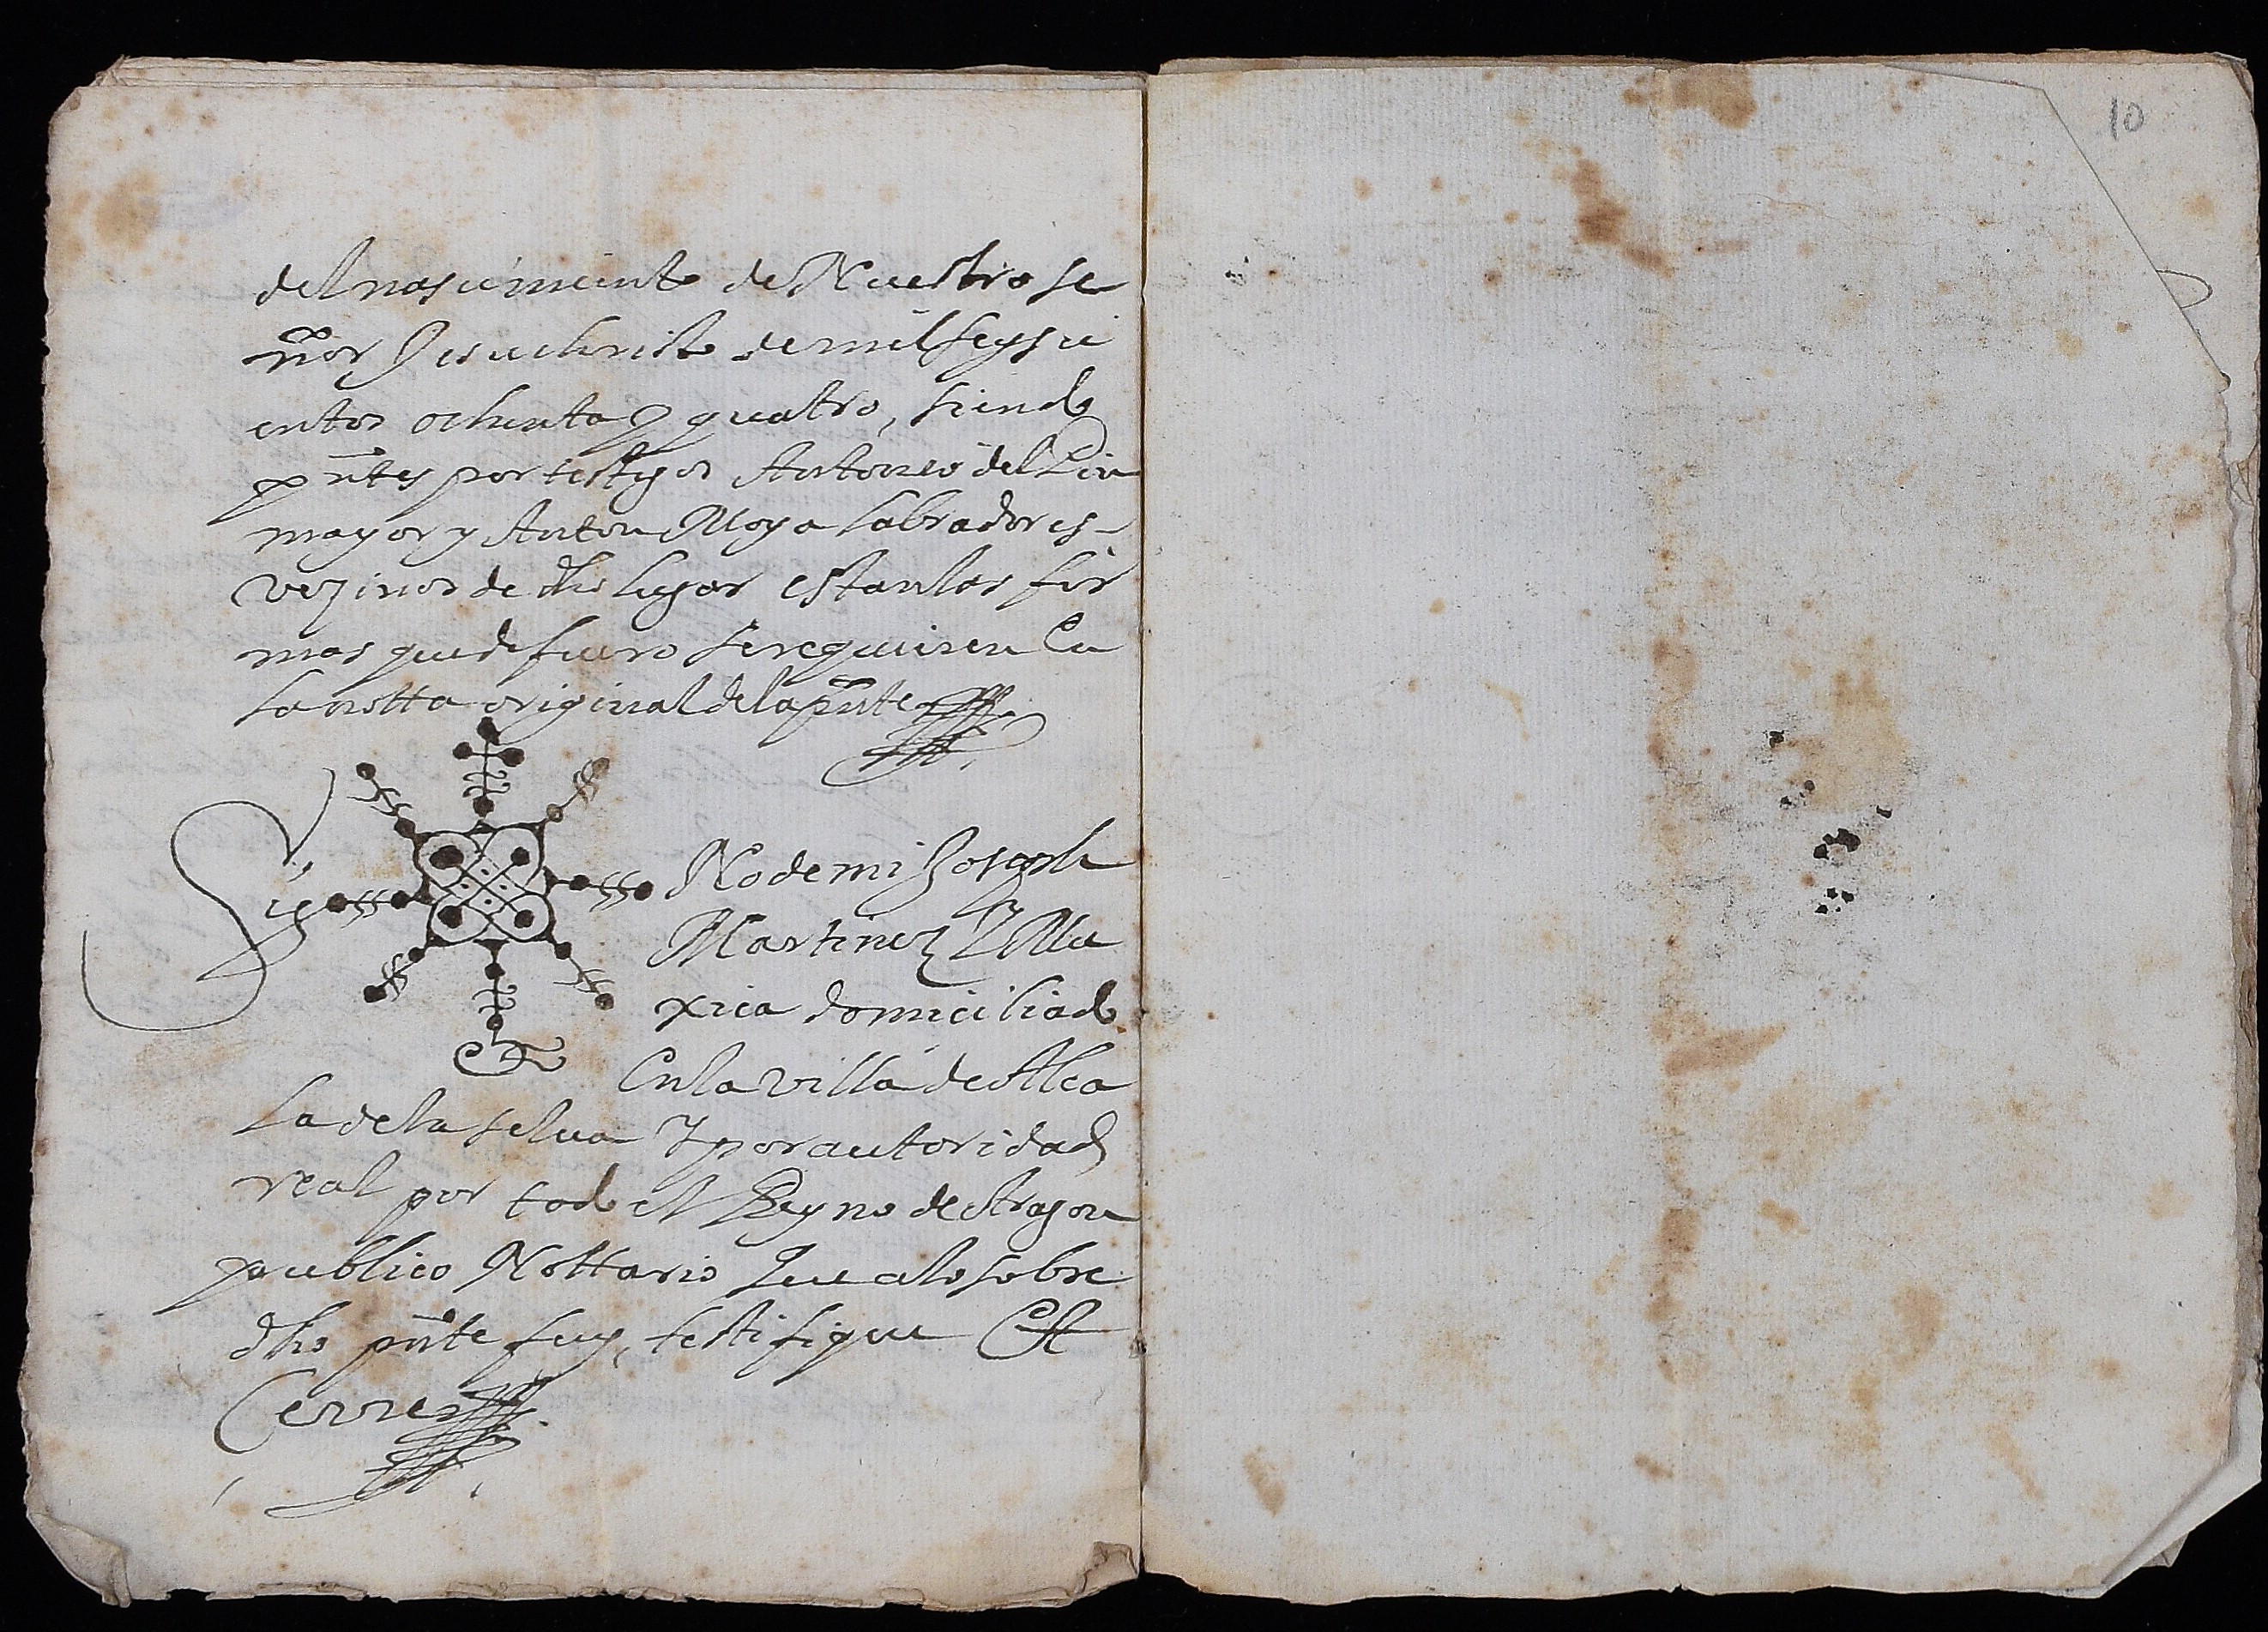 10
del nasçimiento de Nuestro se
ñor Jesuchristo de mil seysci
entos ochenta y quatro, siendo
pñtes por testigos Antonio del Rio
mayor y Anton Moya labradores
vezinos de dho lugar estan las fir
mas que de fuero se requieren en
la notta original de la pñte
Sig No de mi Joseph
Martinez Villa
xica domiciliado
en la villa de Alca
la de la selua y por autoridad
real por todo el Reyno de Aragon
publico Nottario que a lo sobre
dho pñte fuy, testifique et
Cerre